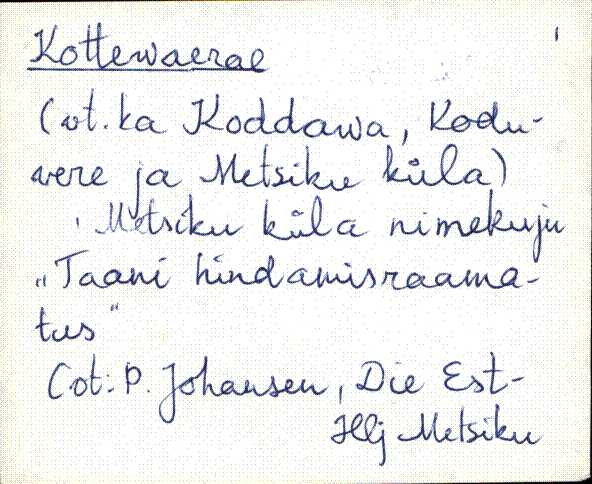 Kottewaerae
(vt. ka Koddawa, Kodu-
vere ja Metsiku küla)
, Metsiku küla nimekuju
„Taani hindamisraama-
tus"
(vt: P. Johansen, Die Est-
Hlj Metsiku